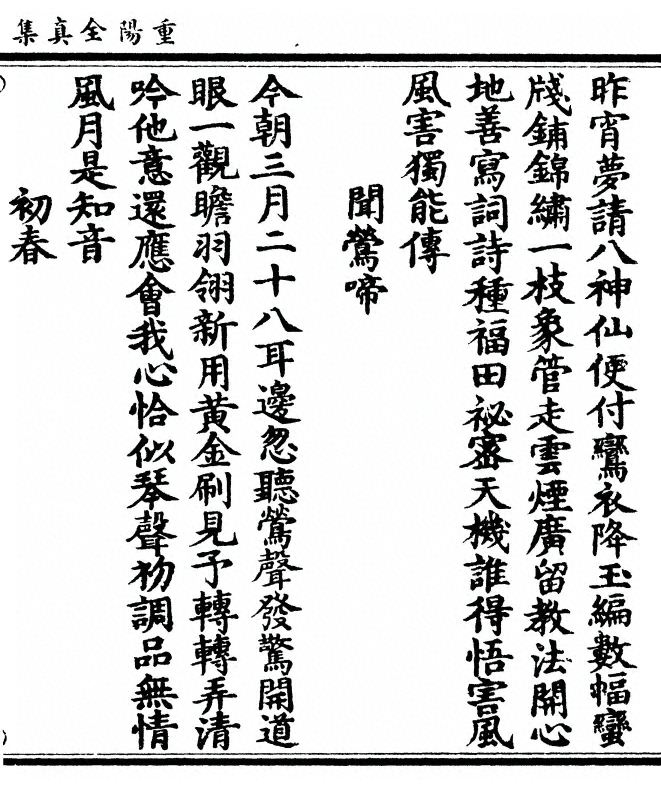 重陽全真集
昨宵夢請八神仙便付鸞衣降玉編數幅蠻
牋鋪錦繡一枝象管走雲煙廣留教法開心
地善寫詞詩種福田祕密天機誰得悟害風
風害獨能傳
聞鶯啼
今朝三月二十八耳邊忽聽鶯聲發驚開道
眼一觀瞻羽翎新用黃金刷見予轉轉弄清
吟他意還應會我心恰似琴聲初調品無情
風月是知音
初春